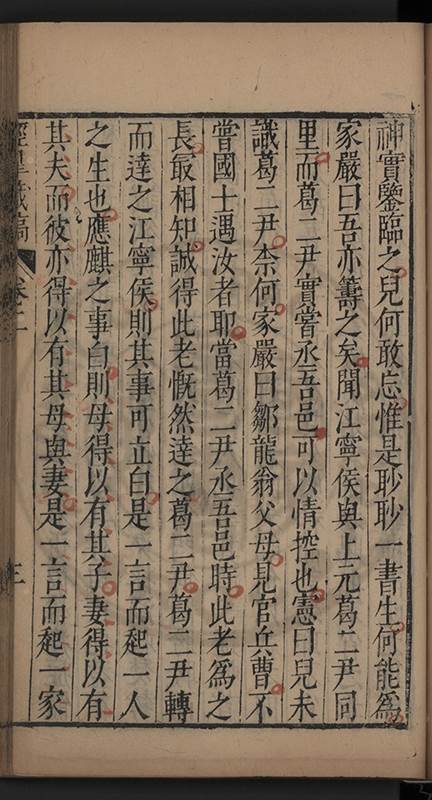 神實鑒臨之兒何敢忘惟是眇眇一書生何能爲
家嚴曰吾亦籌之矣聞江寧侯與上元葛二尹同
里而葛二尹實嘗丞吾邑可以情控也憲曰兒未
識葛二尹柰何家嚴曰鄒龍翁父母見官兵曹不
嘗國士遇汝者耶當葛二尹丞吾邑時此老爲之
長最相知誠得此老慨然達之葛二尹葛二尹轉
而達之江寧侯則其事可立白是一言而起一人
之生也應麒之事白則母得以有其子妻得以有
其夫而彼亦得以有其母與妻是一言而起一家
稿 卷二 三